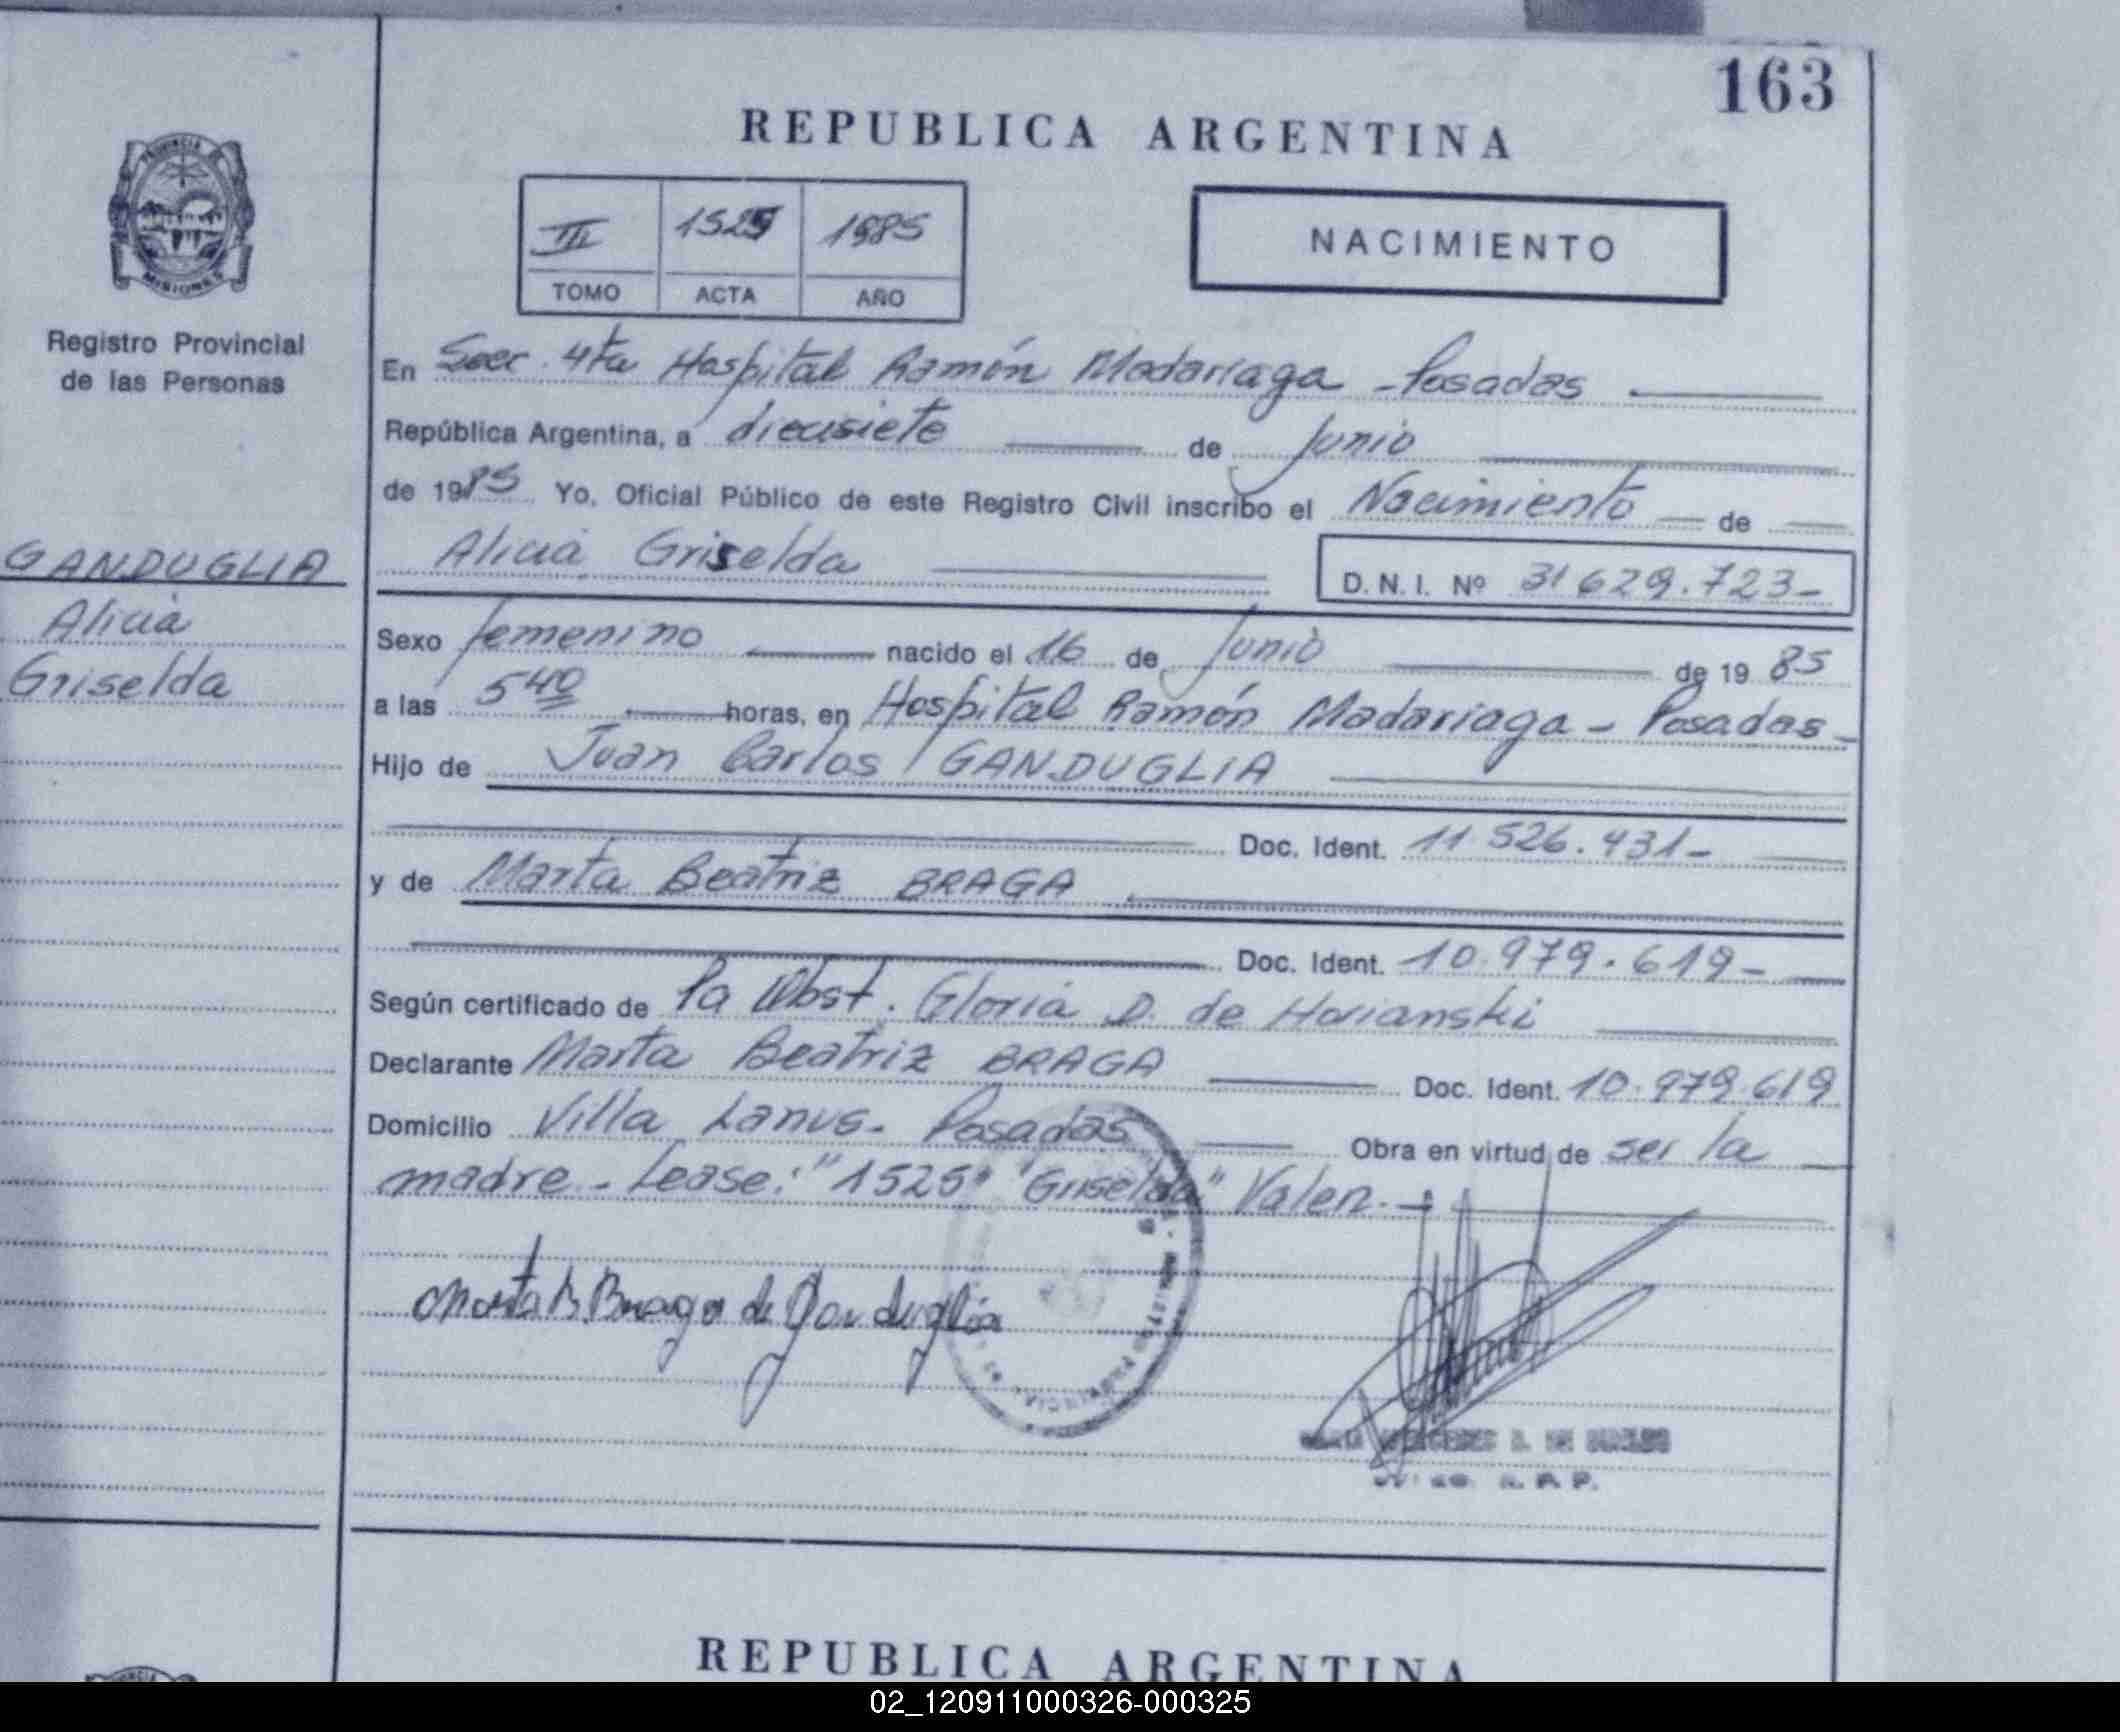 163
REPUBLICA ARGENTINA
PROVINCIA DE
MISIONES
III 1525 1985
TOMO ACTA AÑO
NACIMIENTO
Registro Provincial
de las Personas
En Secc. 4ta Hospital Ramón Madariaga - Posadas
República Argentina, a diecisiete de Junio
de 1985 Yo, Oficial Público de este Registro Civil inscribo el Nacimiento de
Alicia Griselda
D. N. I. Nº 31 629.723-
GANDUGLIA
Alicia
Griselda
Sexo femenino nacido el 16 de Junio de 19 85
a las 5 40 horas, en Hospital Ramón Madariaga - Posadas -
Hijo de Juan Carlos GANDUGLIA
Doc. Ident. 11.526.431-
y de Marta Beatriz BRAGA
Doc. Ident. 10.979.619-
Según certificado de la Obst. Gloria D. de
Declarante Marta Beatriz BRAGA Doc. Ident. 10.979.619
Domicilio Villa Lanus - Posadas Obra en virtud de ser la
madre - Lease: "1525" "Griselda" Valen. -
Marta B. Braga de Ganduglia
R. P. P.
REPUBLICA ARGENTINA
02_120911000326-000325